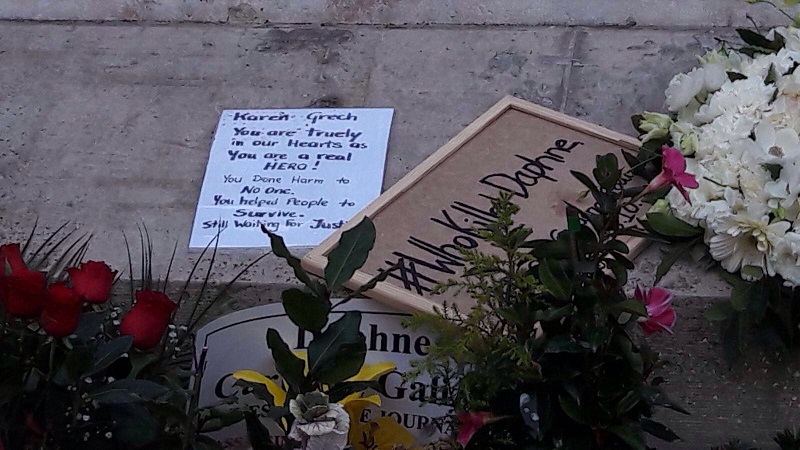 Karen Grech
You are Truely
in our Hearts as
You are a real
HERO!
You Done Harm to
No One.
You helped People to
Survive.
Still Waiting For Just
#WhoKill Daphne
Daphne
Ca Gali
E JOURNA